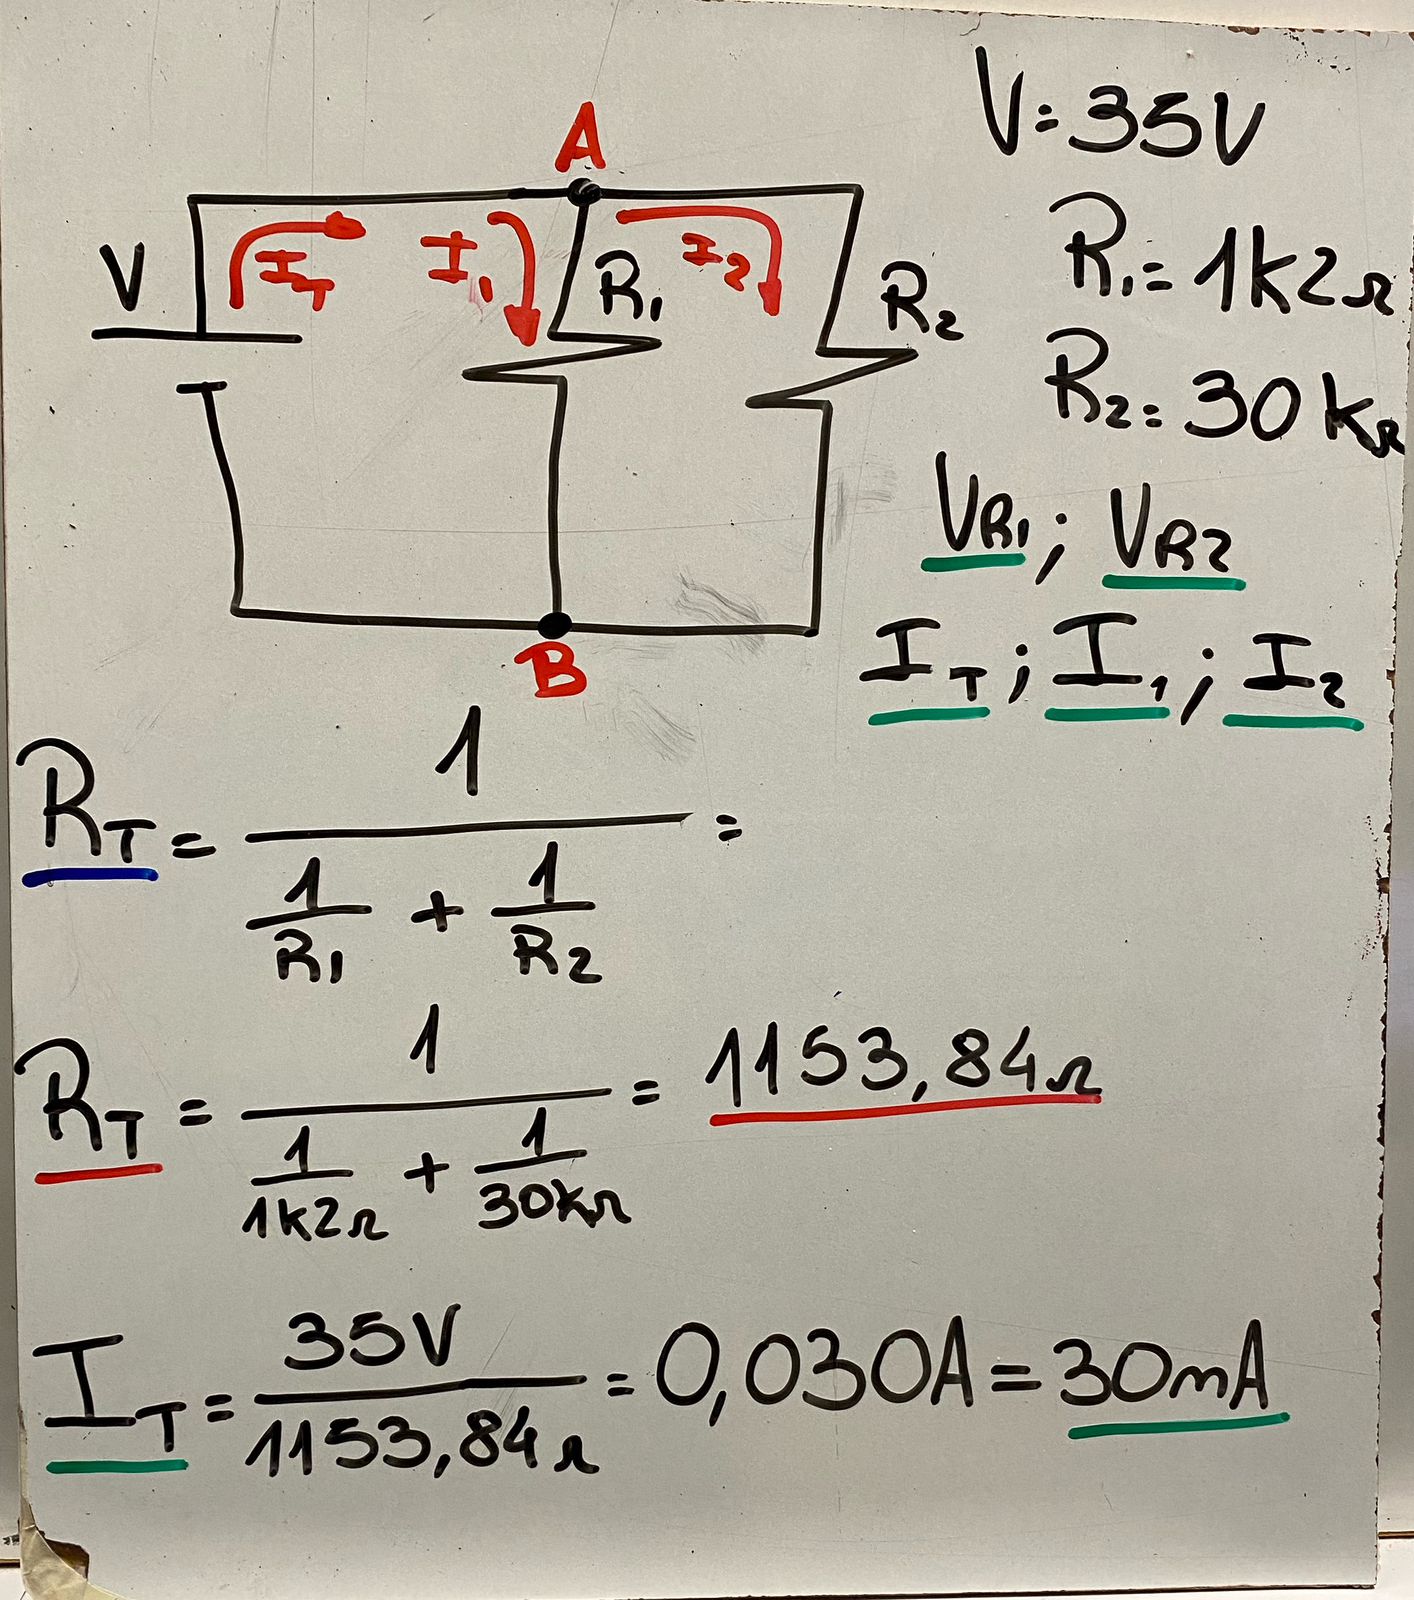 A
V
I_T
I_1
R_1
I_2
R_2
B
V=35V
R_1=1k2Ω
R_2=30kΩ
V_R1; V_R2
I_T; I_1; I_2
R_T = 1 / (1/R_1 + 1/R_2) =
R_T = 1 / (1/1k2Ω + 1/30kΩ) = 1153,84Ω
I_T = 35V / 1153,84Ω = 0,030A = 30mA